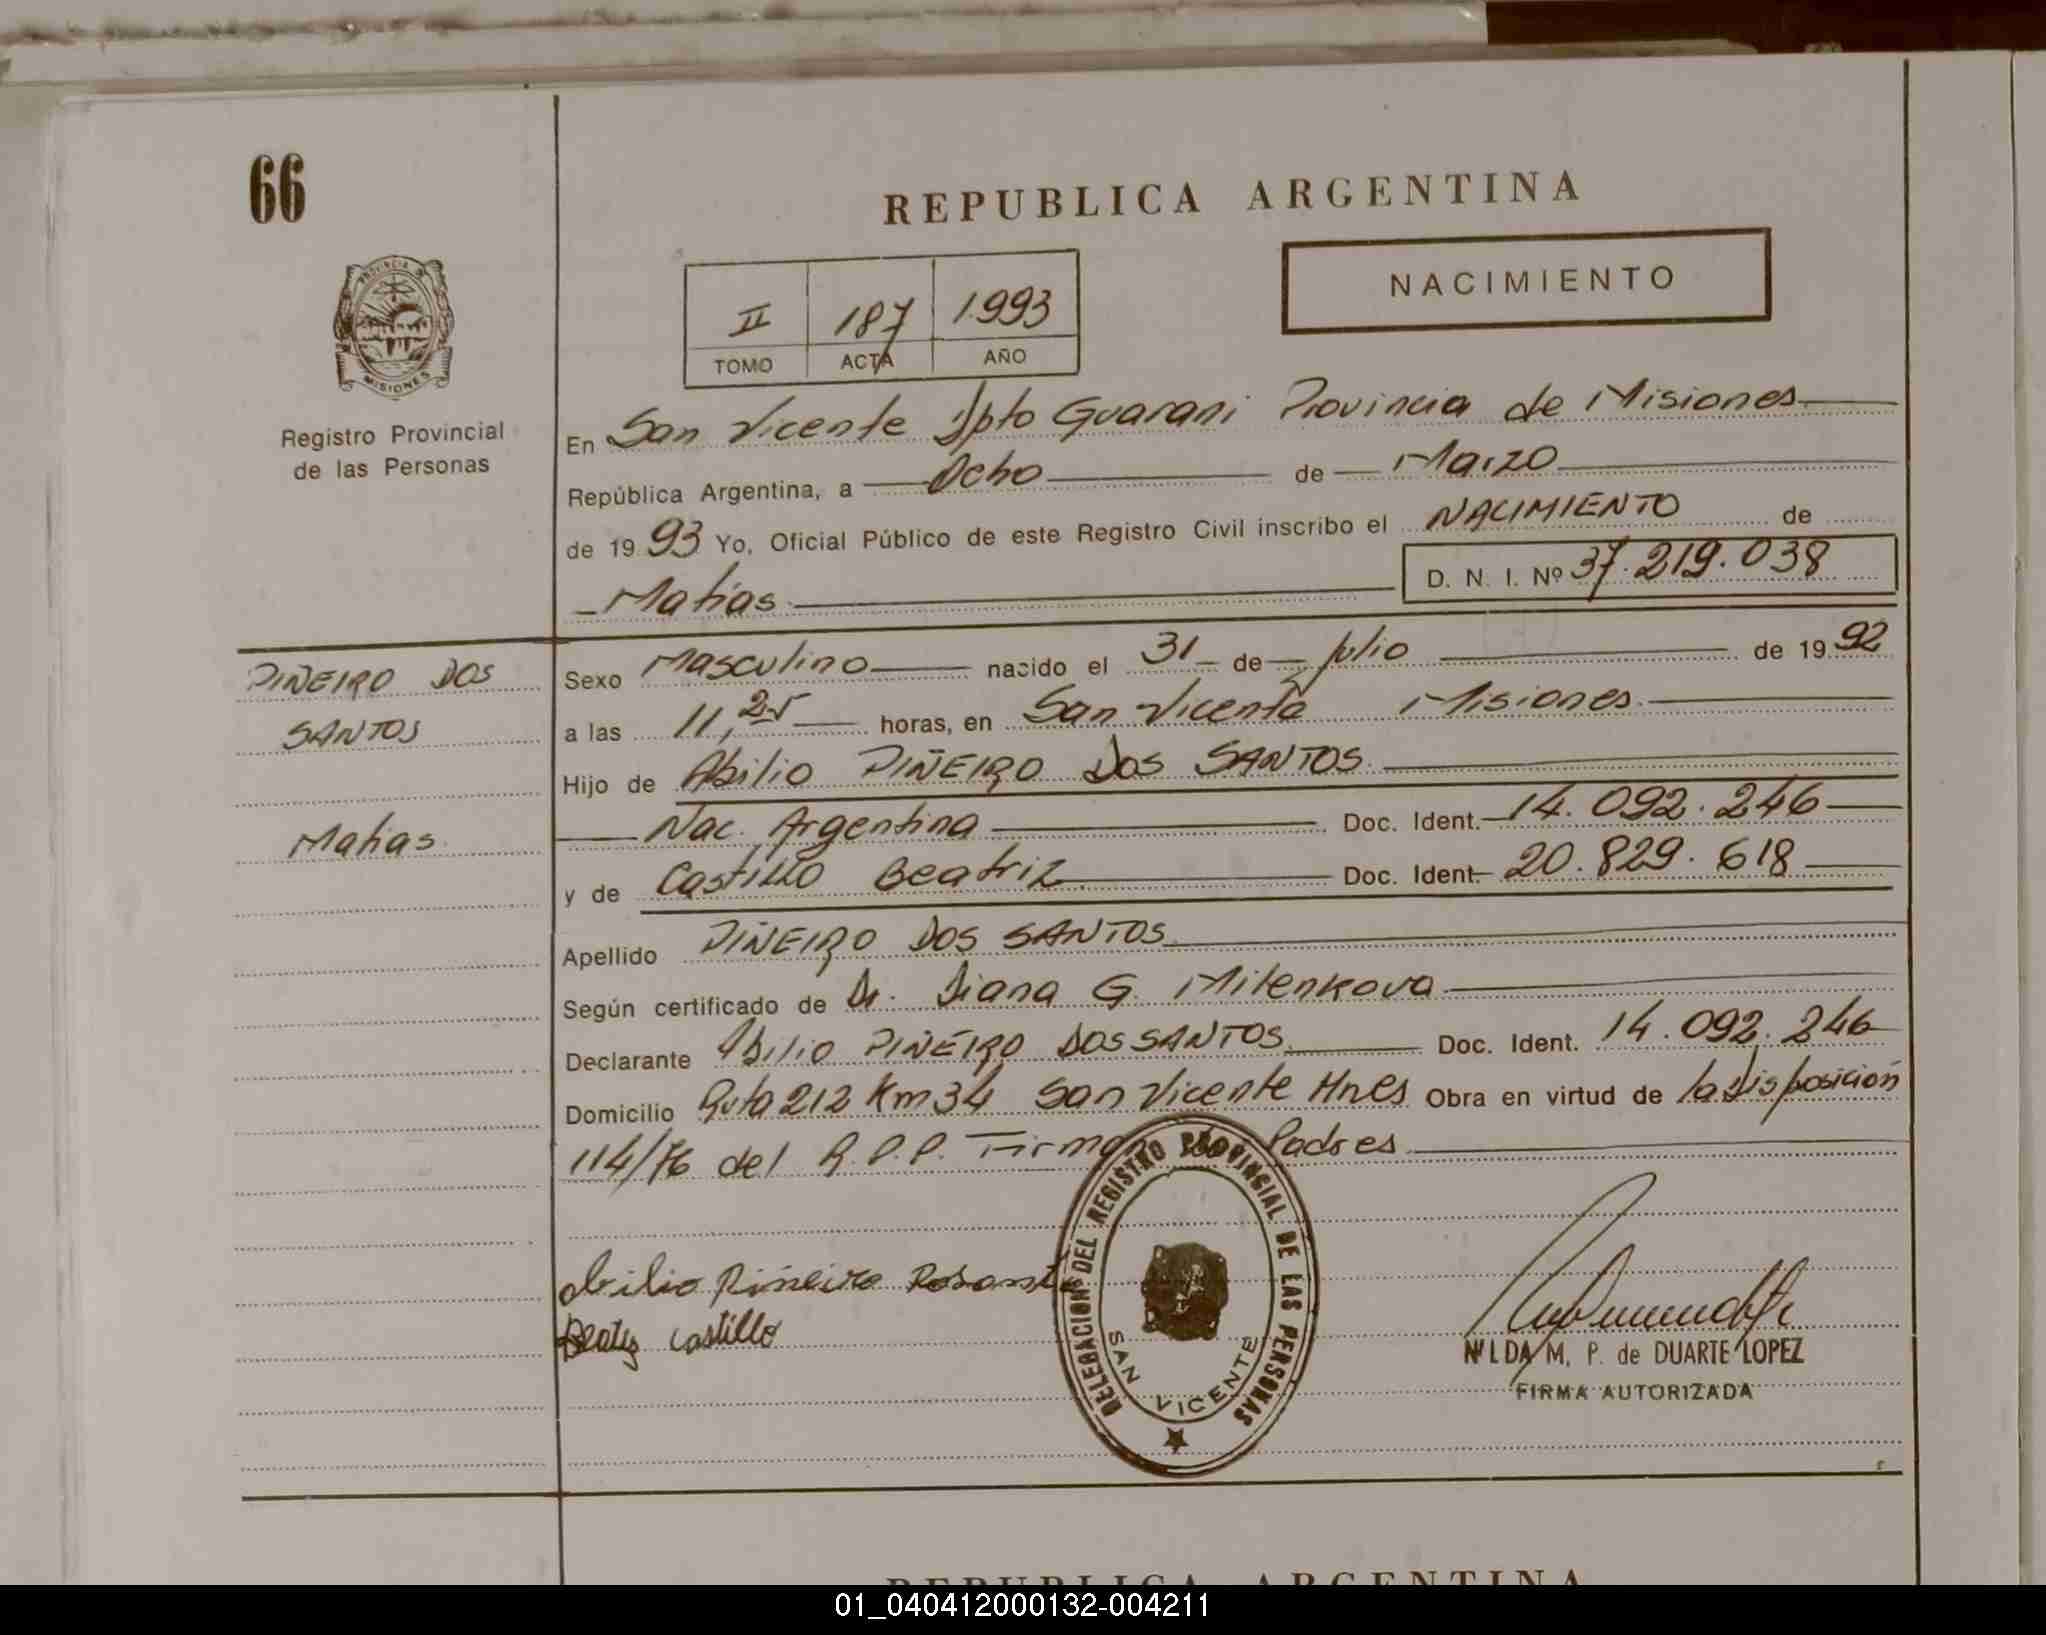 66
REPUBLICA ARGENTINA
NACIMIENTO
II 187 1993
TOMO ACTA AÑO
PROVINCIA DE MISIONES
Registro Provincial
de las Personas
En San Vicente Dpto Guarani Provincia de Misiones
República Argentina, a Ocho de Marzo
de 1993 Yo, Oficial Público de este Registro Civil inscribo el NACIMIENTO de
Matias D. N. I. Nº 37.219.038
PIÑEIRO DOS
SANTOS
Matias
Sexo Masculino nacido el 31 de Julio de 1992
a las 11,25 horas, en San Vicente Misiones
Hijo de Abilio PIÑEIRO DOS SANTOS
Nac. Argentina Doc. Ident. 14.092.246
y de Castillo Beatriz Doc. Ident. 20.829.618
Apellido PIÑEIRO DOS SANTOS
Según certificado de Dr. Diana G. Milenkova
Declarante Abilio PIÑEIRO DOS SANTOS Doc. Ident. 14.092.246
Domicilio Ruta 212 Km 34 San Vicente Mnes Obra en virtud de la Disposicion
114/76 del R.P.P. Firman los Padres
DELEGACION DEL REGISTRO PROVINCIAL DE LAS PERSONAS
SAN VICENTE
Abilio Piñeiro
Beatriz Castillo
NILDA M. P. de DUARTE LOPEZ
FIRMA AUTORIZADA
REPUBLICA ARGENTINA
01_040412000132-004211